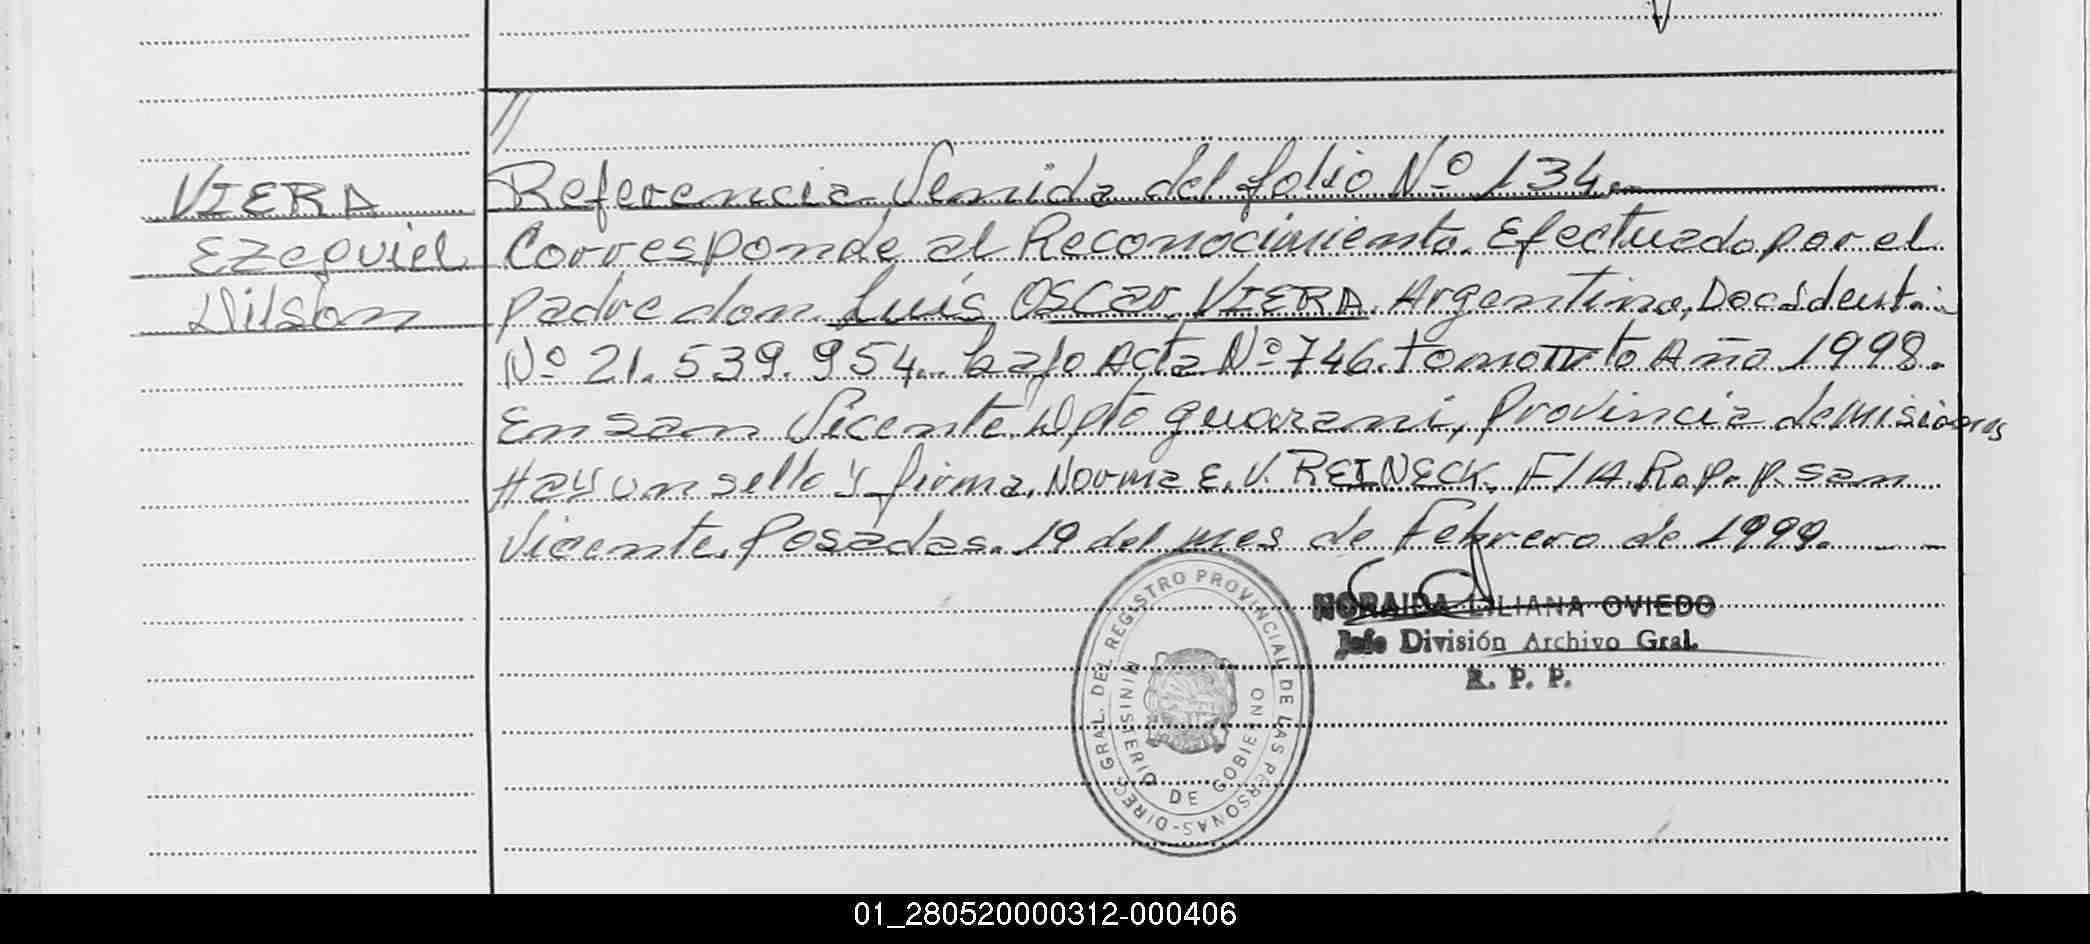 VIERA
Ezequiel
Wilson
//
Referencia Venida del folio Nº 134.
Corresponde al Reconocimiento. Efectuado por el
padre don Luís Oscar VIERA. Argentino, Doc.Ident.:
Nº 21.539.954. bajo Acta Nº 746. tomo Año 1998.
En san Vicente, Dpto guarani, Provincia de misiones
Hay un sello y firma, Norma E. V. REINECK. F/A R.P.P. san
Vicente. Posadas. 19 del mes de Febrero de 1999.
NORAIDA LILIANA OVIEDO
Jefe División Archivo Gral.
R. P. P.
DIREC. GRAL. DEL REGISTRO PROVINCIAL DE LAS PERSONAS-
MINISTERIO DE GOBIERNO
01_280520000312-000406